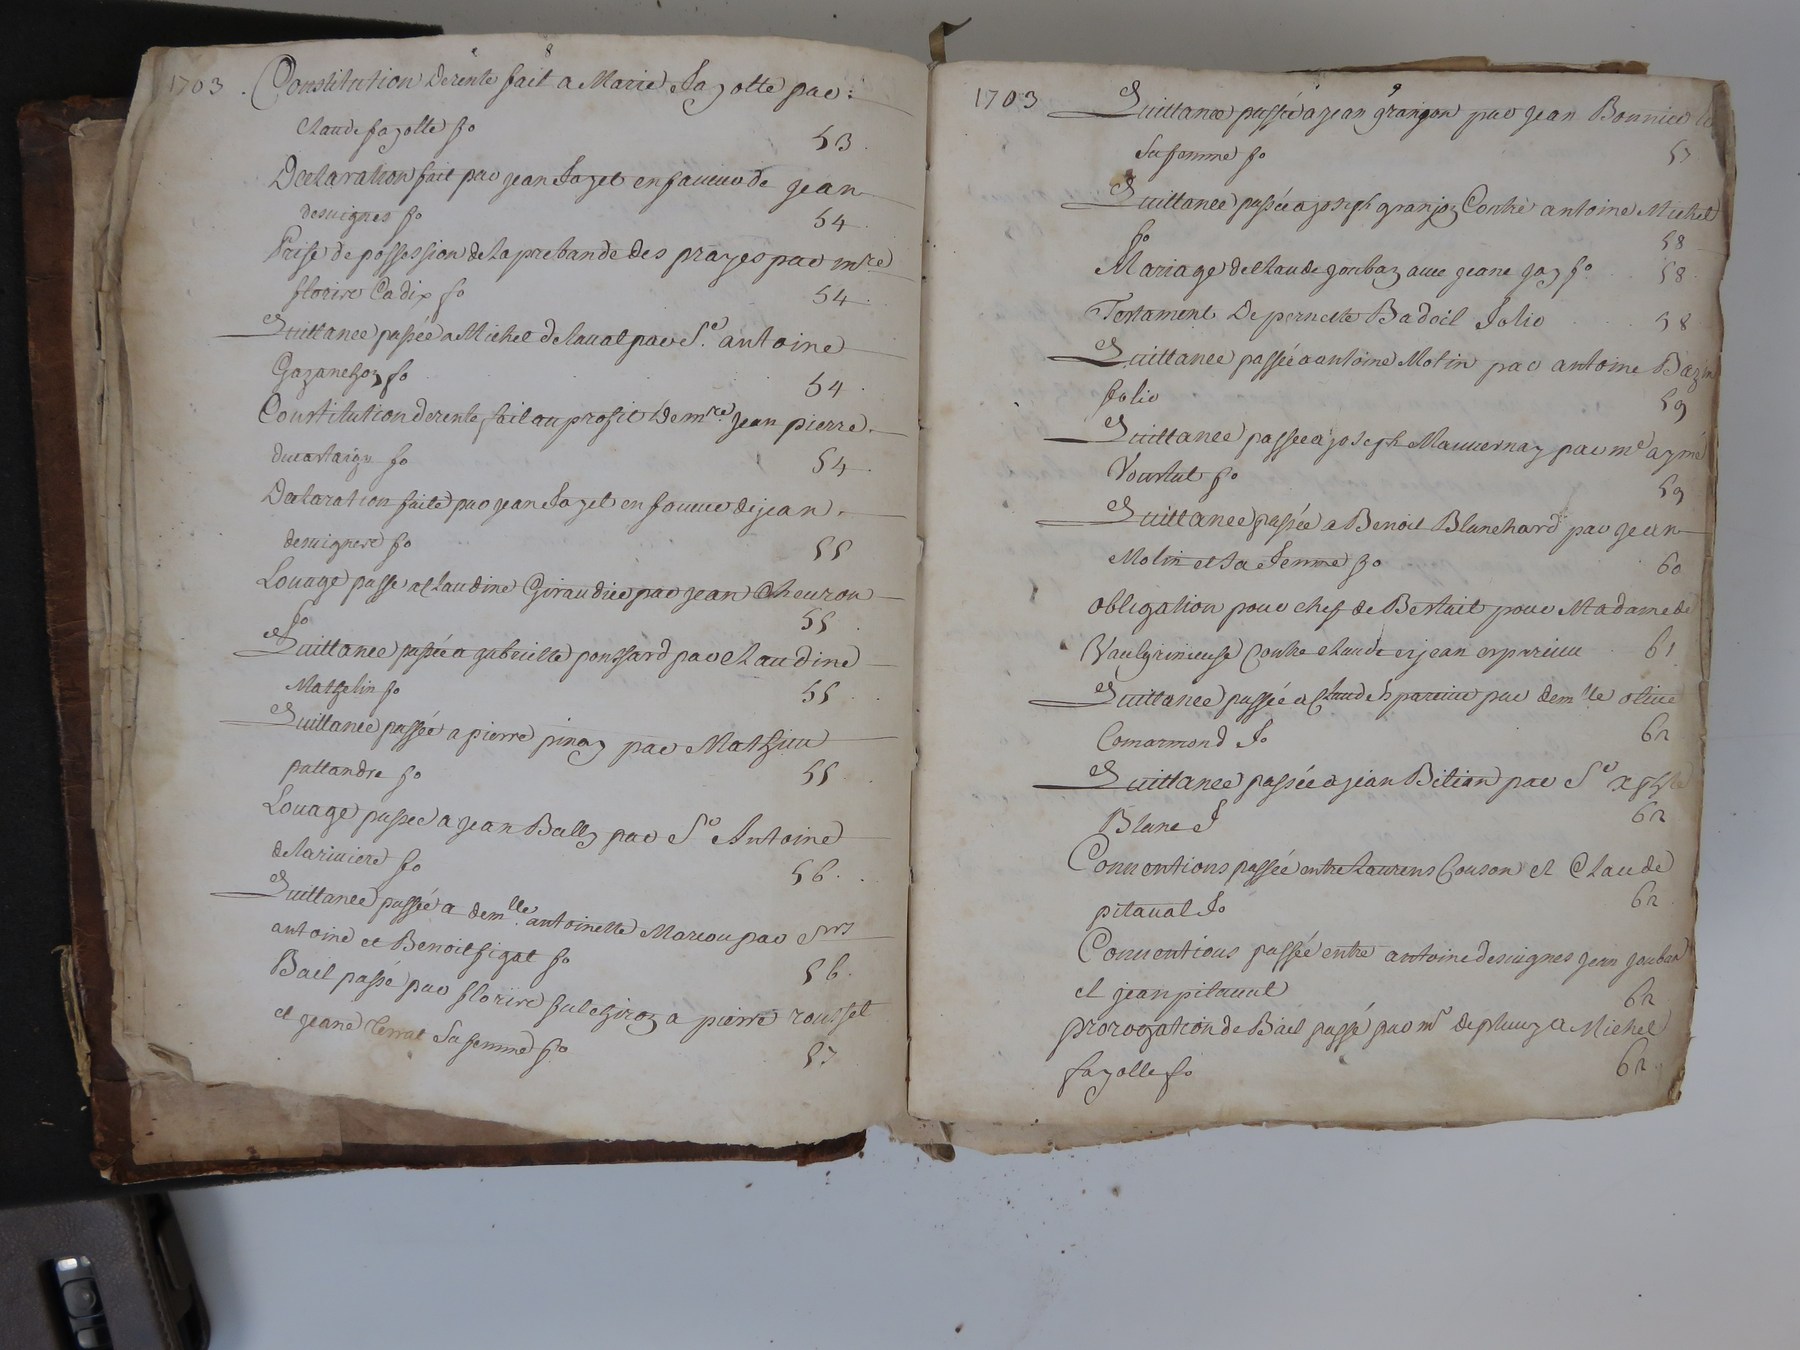 8
1703. Constitution de rente fait a Marie Fayolle par
Claude fayolle fo 53
Declaration fait par jean Fayel en faveur de jean
desvignes fo 54
Prise de possession de la prebande des prayes par mre
florire Cadix fo 54
Quittance passée a Michel delaval par Sr antoine
Gazanchoz fo 54
Constitution de rente fait au profit de mre jean pierre
fo 54
Declaration faite par jean Fayel en faveur de jean
desvignes fo 55
Louage passe a Claudine Giraudier par jean Cheuron
fo 55
Quittance passée a gabrielle poussard par Claudine
Mathelin fo 55
Quittance passée a pierre pinay par Mathieu
pallandre fo 55
Louage passee a jean Bally par Sr Antoine
de lariviere fo 56
Quittance passée a demlle antoinette Marcou par Srs
antoine et Benoit figat fo 56
Bail passé par florire fulchiroz a pierre rousset
et jeane Terrat sa femme fo 57
9
1703 Quittance passée a jean granjon par jean Bonnier
sa femme fo 57
Quittance passée a joseph granjoz Contre antoine Michel
fo 58
Mariage de Claude goubaz avec jeane gay fo 58
Testament De pernette Badoil Folio 58
Quittance passée a antoine Molin par antoine Bazin
folio 59
Quittance passee a joseph Mauvernay par me aymé
Vourlat fo 59
Quittance passée a Benoit Blanchard par jean
Molin et sa Femme fo 60
obligation pour chef de Bestait pour Madame de
Vaulgrineuse Contre Claude et jean 61
Quittance passée a Claude par demlle olive
Comarmond Fo 62
Quittance passée a jean Bitian par Sr
Blanc F 62
Conventions passée entre Laurens Couson et Claude
pitaval Fo 62
Conventions passée entre antoine desvignes jean
et jean pitaval 62
prorogation de Bail passé par mr a Michel
fayolle fo 62